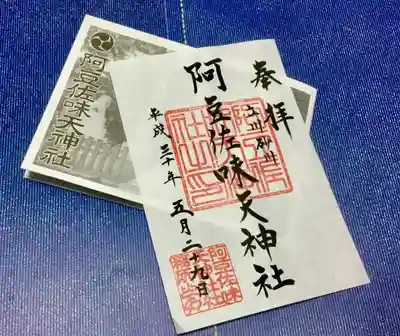 奉拝
立川砂川
阿豆佐味天神社
平成三十年五月二十九日
阿豆佐味天神社